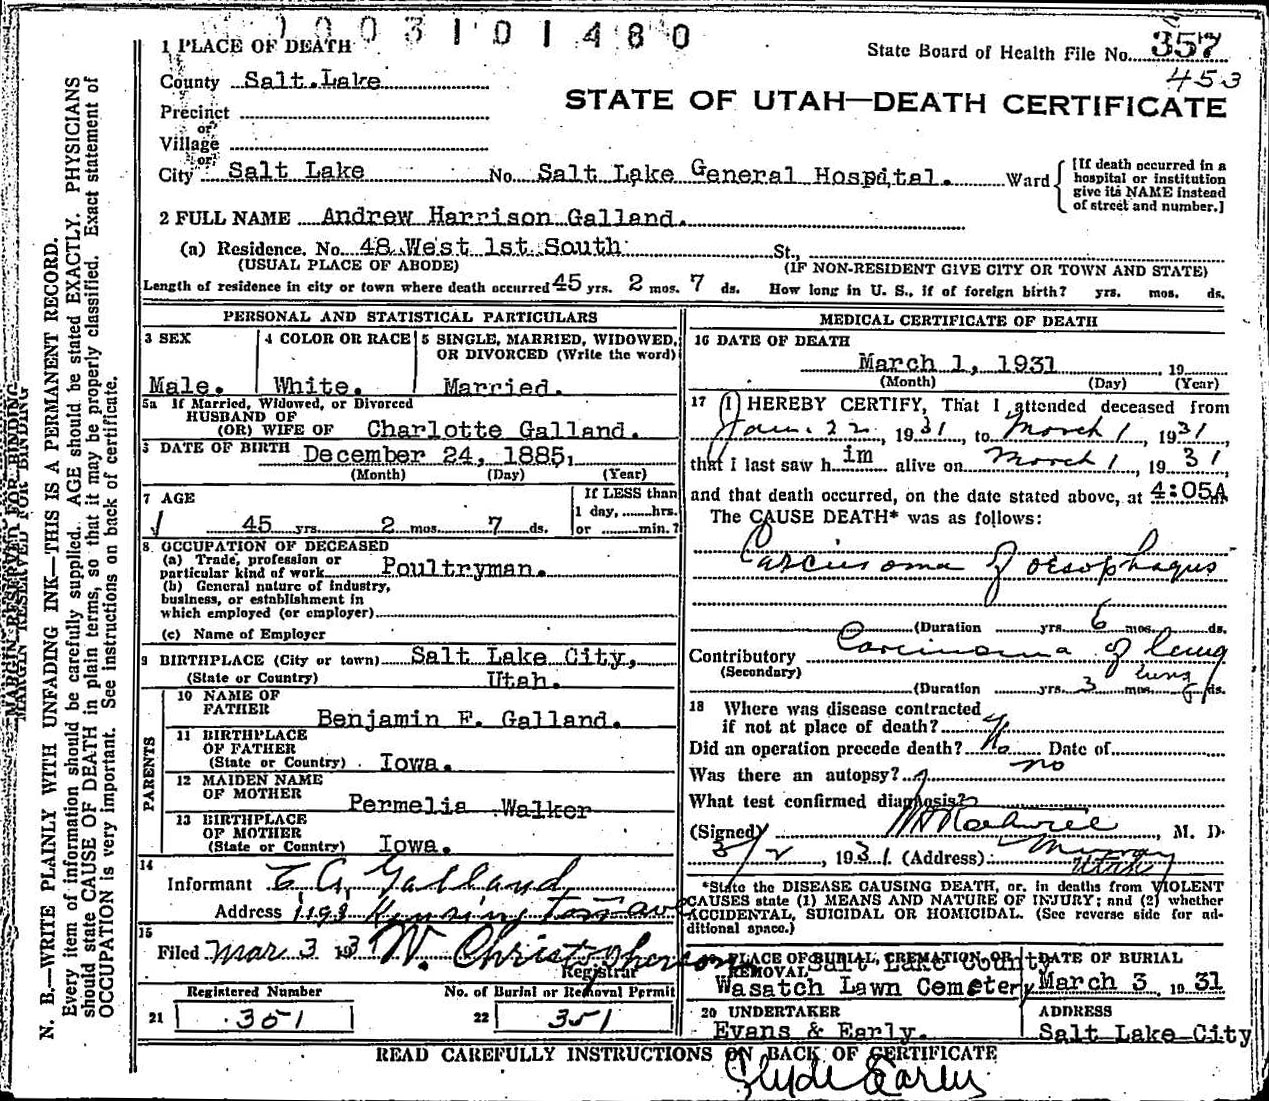 1003101480
State Board of Health File No. 357
453
STATE OF UTAH—DEATH CERTIFICATE
1 PLACE OF DEATH
County Salt Lake
Precinct
or
Village
or
City Salt Lake No. Salt Lake General Hospital. Ward
[If death occurred in a
hospital or institution
give its NAME instead
of street and number.]
2 FULL NAME Andrew Harrison Galland.
(a) Residence. No. 48 West 1st South St.,
(USUAL PLACE OF ABODE) (IF NON-RESIDENT GIVE CITY OR TOWN AND STATE)
Length of residence in city or town where death occurred 45 yrs. 2 mos. 7 ds. How long in U. S., if of foreign birth? yrs. mos. ds.
PERSONAL AND STATISTICAL PARTICULARS
3 SEX
Male.
4 COLOR OR RACE
White.
5 SINGLE, MARRIED, WIDOWED,
OR DIVORCED (Write the word)
Married.
5a If Married, Widowed, or Divorced
HUSBAND OF
(OR) WIFE OF Charlotte Galland.
DATE OF BIRTH December 24, 1885,
(Month) (Day) (Year)
7 AGE
45 yrs. 2 mos. 7 ds.
If LESS than
1 day, hrs.
or min.?
8 OCCUPATION OF DECEASED
(a) Trade, profession or
particular kind of work Poultryman.
(b) General nature of industry,
business, or establishment in
which employed (or employer)
(c) Name of Employer
9 BIRTHPLACE (City or town) Salt Lake City,
(State or Country) Utah.
PARENTS
10 NAME OF
FATHER
Benjamin F. Galland.
11 BIRTHPLACE
OF FATHER
(State or Country) Iowa.
12 MAIDEN NAME
OF MOTHER
Permelia Walker
13 BIRTHPLACE
OF MOTHER
(State or Country) Iowa.
14
Informant Galland
Address Kensington ave
15
Filed Mar 3 193 W. Christopherson
Registrar
Registered Number No. of Burial or Removal Permit
21 351 22 351
MEDICAL CERTIFICATE OF DEATH
16 DATE OF DEATH
March 1, 1931 19
(Month) (Day) (Year)
17 (I) HEREBY CERTIFY, That I attended deceased from
Jan. 22, 1931, to March 1, 1931,
that I last saw him alive on March 1, 1931
and that death occurred, on the date stated above, at 4:05A
The CAUSE DEATH* was as follows:
Carcinoma of oesophagus
(Duration yrs. 6 mos. ds.
Contributory Carcinoma of lung
(Secondary) lung
(Duration yrs. 3 mos. ds.
18 Where was disease contracted
if not at place of death?
Did an operation precede death? No Date of
Was there an autopsy? no
What test confirmed diagnosis?
(Signed) M. D.
3/2, 1931 (Address) Murray
Utah
*State the DISEASE CAUSING DEATH, or, in deaths from VIOLENT
CAUSES state (1) MEANS AND NATURE OF INJURY; and (2) whether
ACCIDENTAL, SUICIDAL OR HOMICIDAL. (See reverse side for ad-
ditional space.)
PLACE OF BURIAL, CREMATION, OR
REMOVAL Salt Lake County
Wasatch Lawn Cemetery
DATE OF BURIAL
March 3, 1931
20 UNDERTAKER
Evans & Early.
ADDRESS
Salt Lake City
READ CAREFULLY INSTRUCTIONS ON BACK OF CERTIFICATE
Clyde Early
MARGIN RESERVED FOR BINDING
N. B.—WRITE PLAINLY WITH UNFADING INK—THIS IS A PERMANENT RECORD.
Every item of information should be carefully supplied. AGE should be stated EXACTLY. PHYSICIANS
should state CAUSE OF DEATH in plain terms, so that it may be properly classified. Exact statement of
OCCUPATION is very important. See instructions on back of certificate.